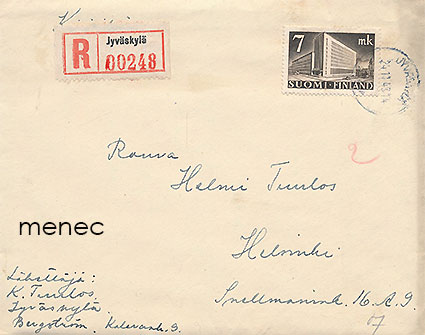 R
Jyväskylä
00248
7 mk
SUOMI-FINLAND
Rouva
Helmi Tuulos
Helsinki
Snellmanink. 16. A. 9.
2
menec
Lähettäjä:
K. Tuulos.
Jyväskylä.
Bergström, Kalevank. 9.